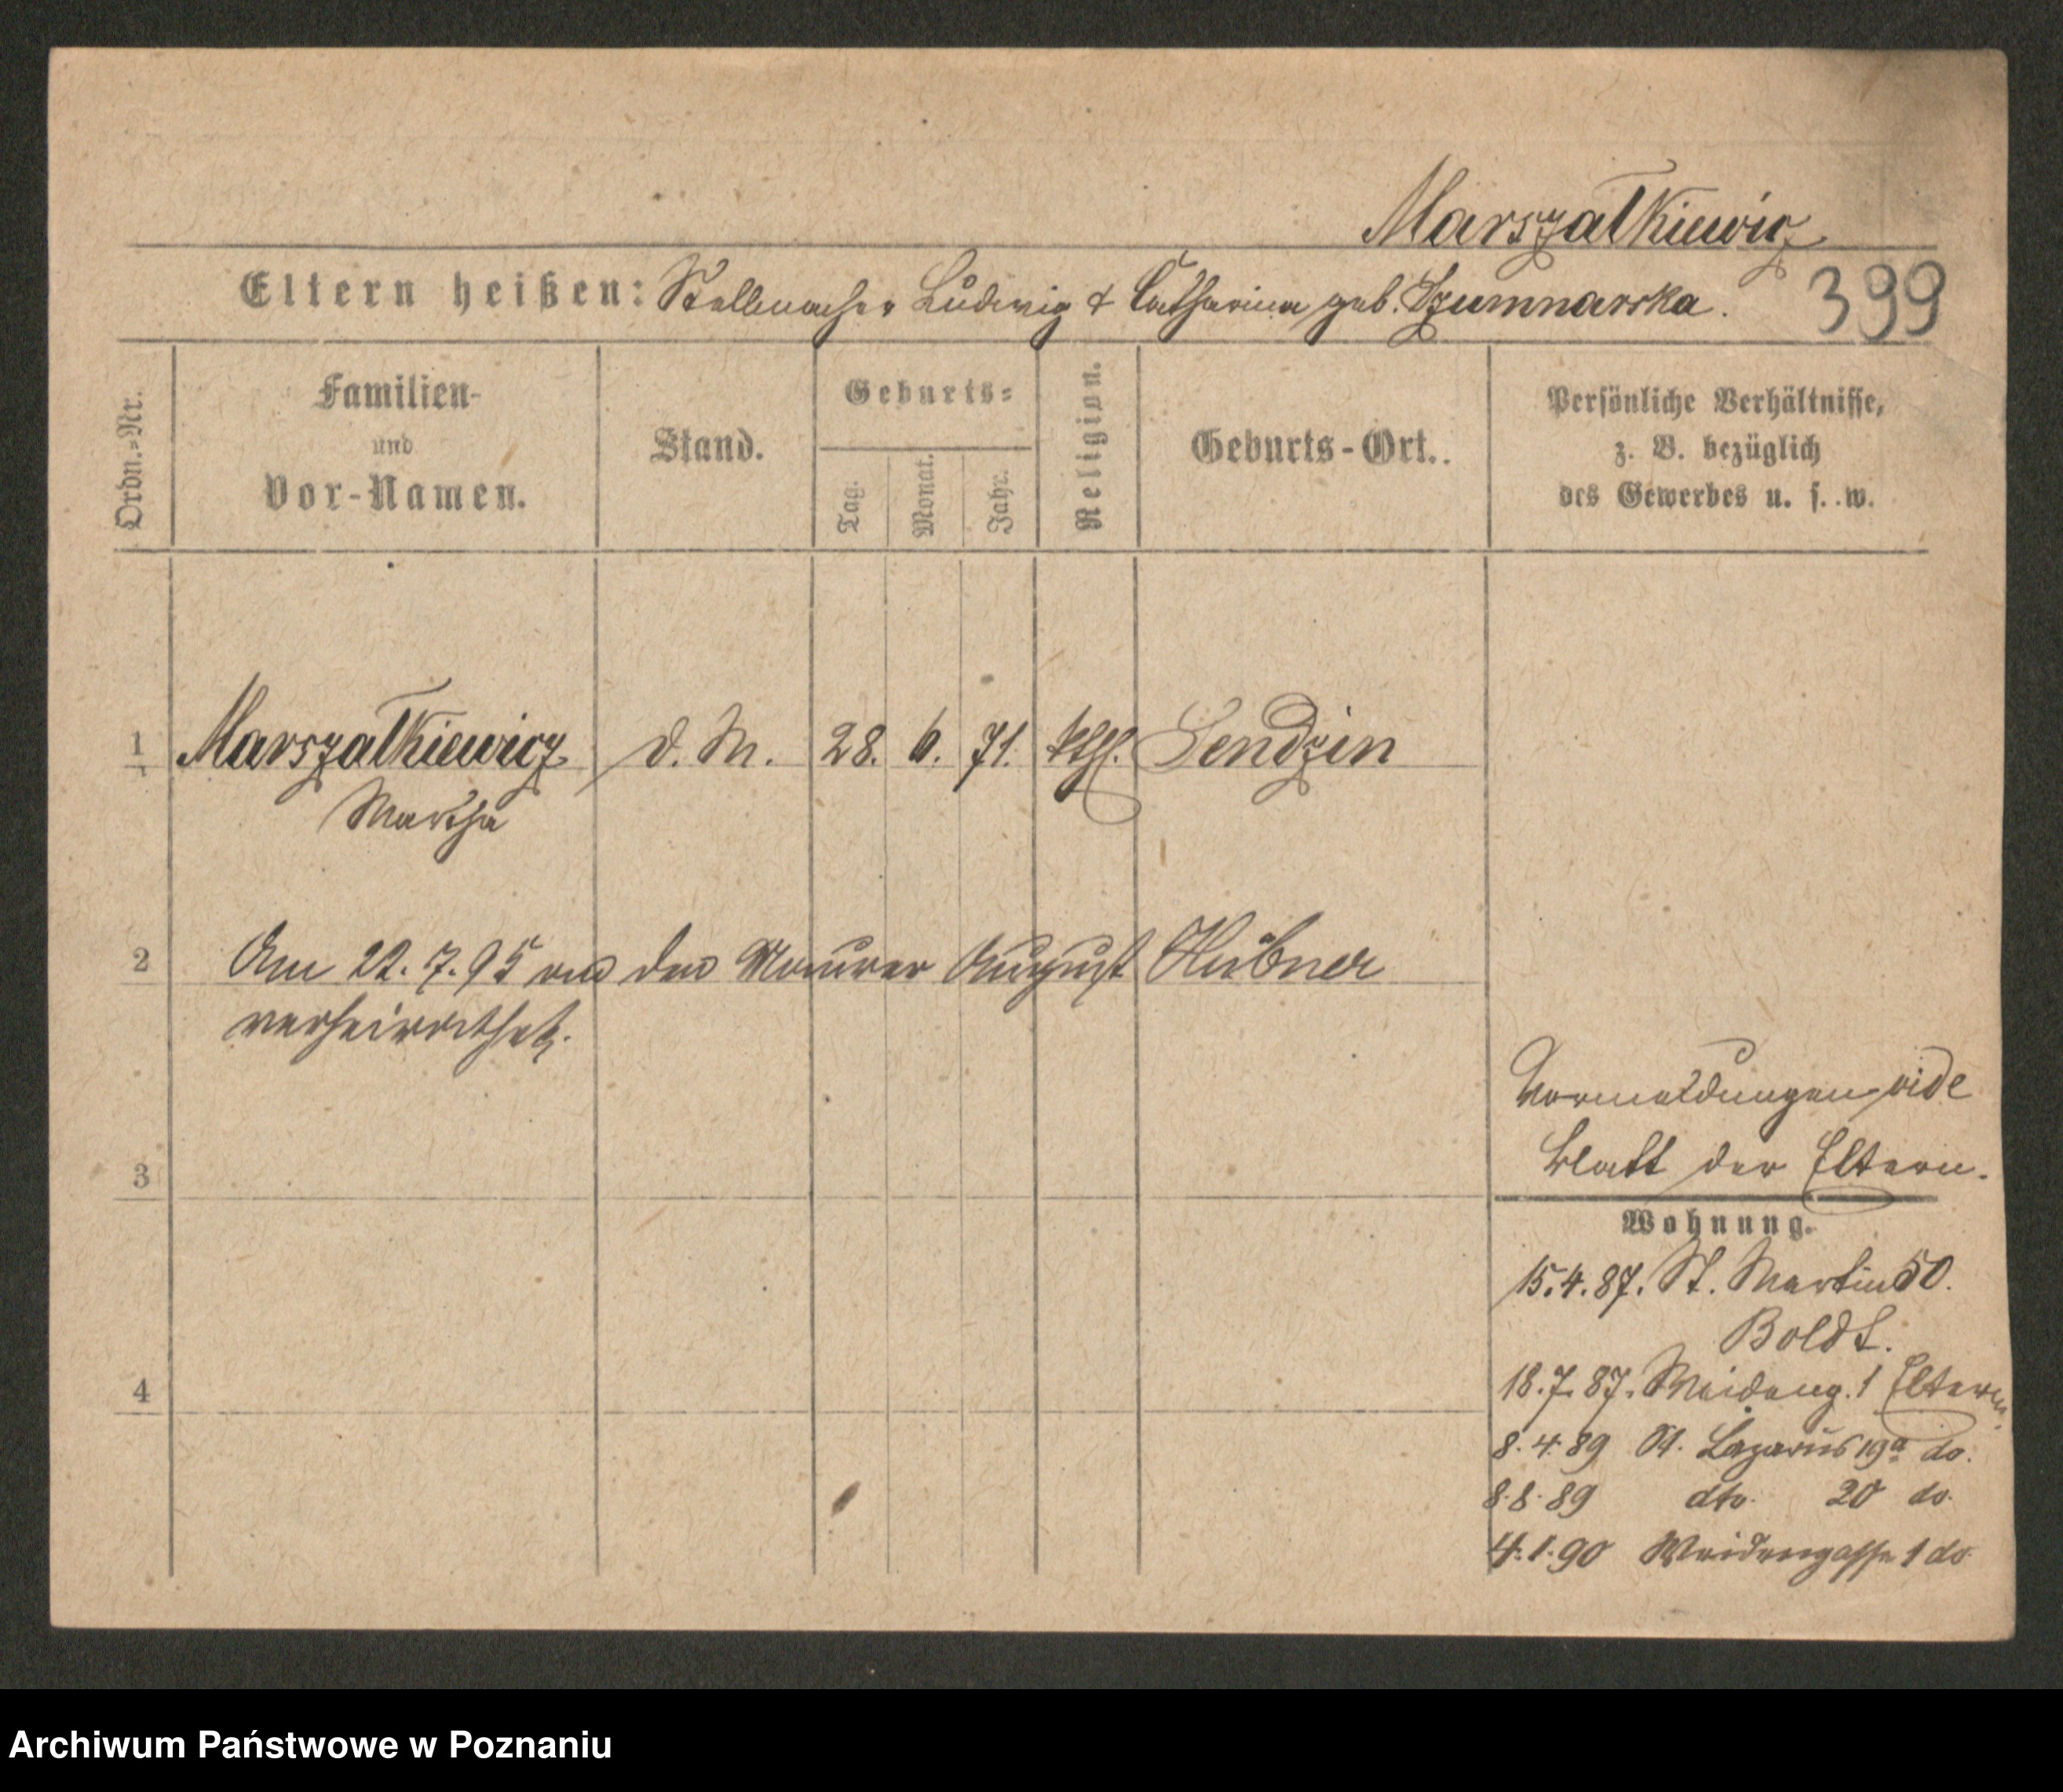 Marszałkiewicz
Eltern heißen: Stellmacher Ludwig & Catharina geb. Szumnarska.
399
Ordn.-Nr.
Familien-
und
Vor-Namen.
Stand.
Geburts-
Tag.
Monat.
Jahr.
Religion.
Geburts-Ort.
Persönliche Verhältnisse,
z. B. bezüglich
des Gewerbes u. s. w.
1 Marszałkiewicz d. M. 28. 6. 71. kthl. Sendzin
Martha
2 Am 22. 7. 95 an den Maurer August Hübner
verheirathet.
Vormeldungen vide
Blatt der Eltern.
3
Wohnung.
15.4.87. St. Martin 50.
Boldt.
18.7.87. Weideng. 1 Eltern
4
8.4.89 St. Lazarus 19a do.
8.8.89 dto. 20 do.
4.1.90 Weidengasse 1 do
Archiwum Państwowe w Poznaniu